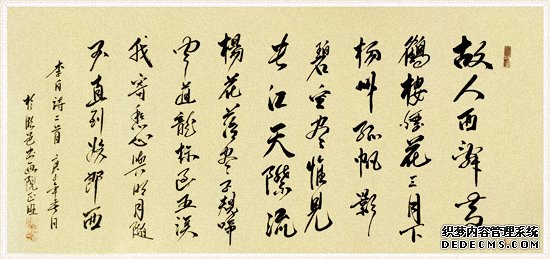 故人西辭黃
鶴樓煙花三月下
楊州孤帆影
碧空盡惟見
長江天際流
楊花落盡子規啼
聞道龍標過五溪
我寄愁心與明月隨
君直到夜郎西
李白詩二首
織夢内容管理系统
DEDECMS.COM